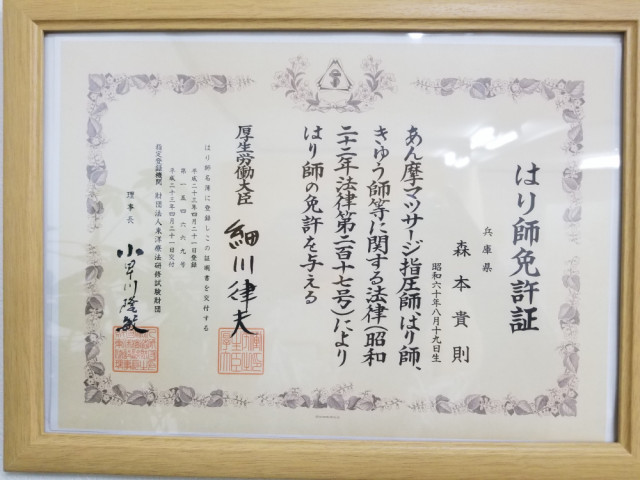 はり師免許証
兵庫県
森本貴則
昭和六十年八月十九日生
あん摩マツサージ指圧師、はり師、
きゆう師等に関する法律(昭和
二十二年法律第二百十七号)により
はり師の免許を与える
厚生労働大臣 細川律夫
はり師名簿に登録しこの証明書を交付する
平成二十三年四月二十一日登録
第一五四六六九号
平成二十三年四月二十一日交付
指定登録機関 財団法人東洋療法研修試験財団
理事長 小早川隆敏